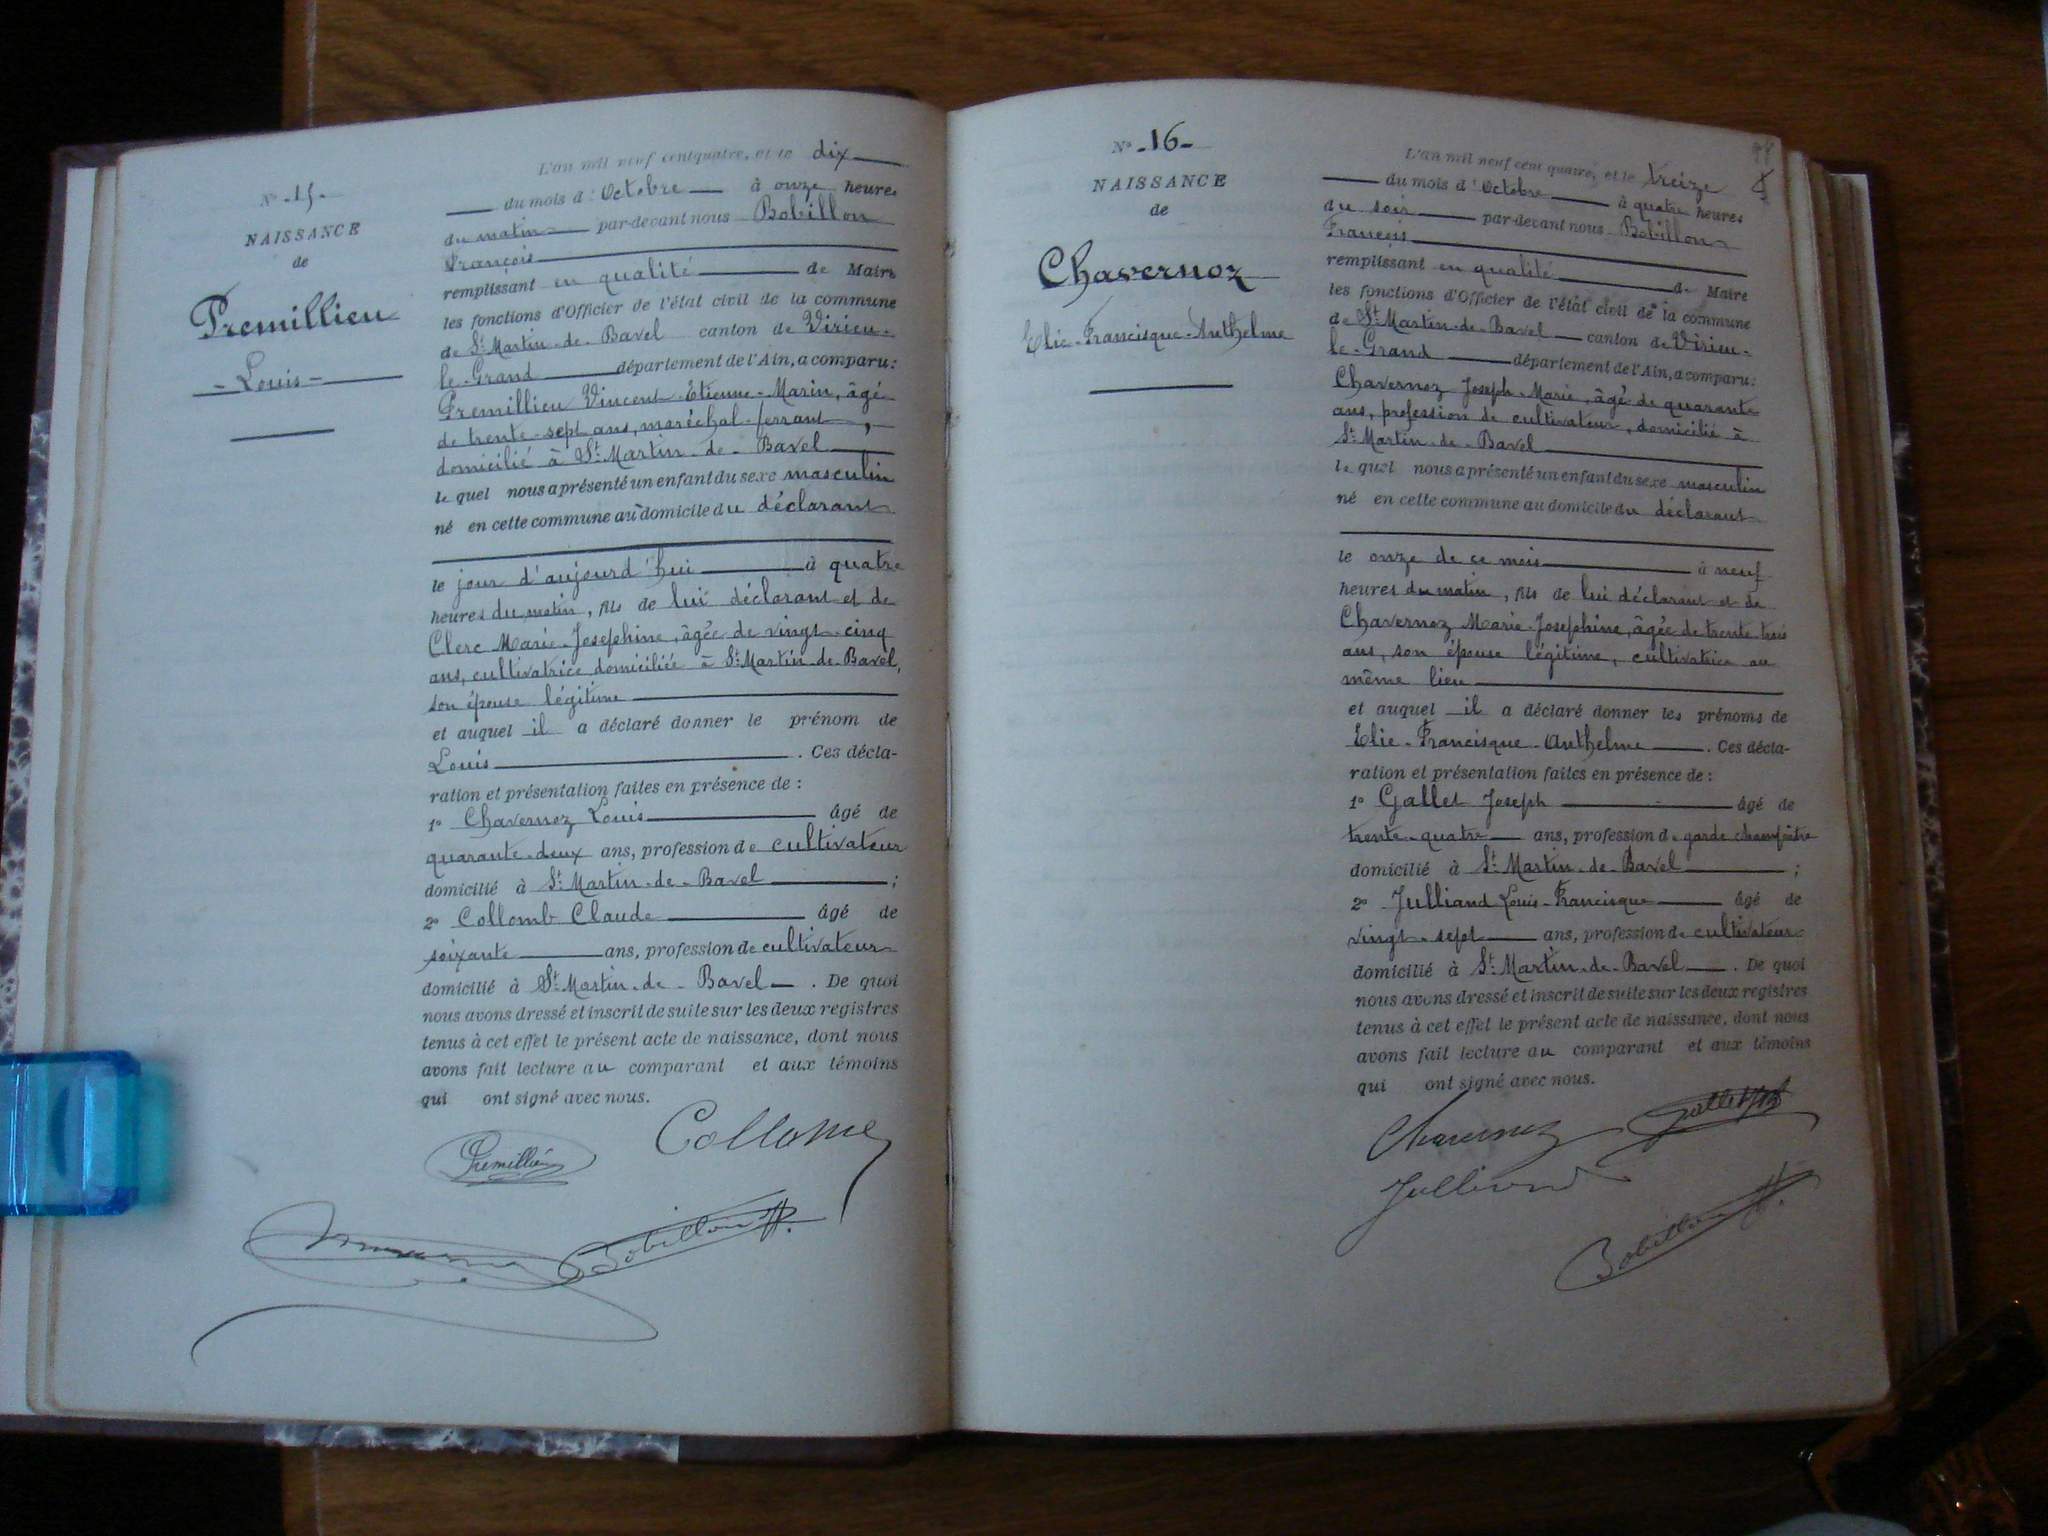 N° -15-
NAISSANCE
de
Premillieu
- Louis -
L'an mil neuf cent quatre, et le dix
du mois d'Octobre à onze heures
du matin par-devant nous Bobillon
François
remplissant en qualité de Maire
les fonctions d'Officier de l'état civil de la commune
de St Martin-de-Bavel canton de Virieu-
le-Grand département de l'Ain, a comparu:
Premillieu Vincent-Étienne-Marin, âgé
de trente-sept ans, maréchal-ferrant,
domicilié à St Martin-de-Bavel
le quel nous a présenté un enfant du sexe masculin
né en cette commune au domicile du déclarant
le jour d'aujourd'hui à quatre
heures du matin, fils de lui déclarant et de
Clerc Marie-Josephine, âgée de vingt-cinq
ans, cultivatrice domiciliée à St Martin-de-Bavel,
son épouse légitime
et auquel il a déclaré donner le prénom de
Louis. Ces décla-
ration et présentation faites en présence de :
1° Chavernoz Louis âgé de
quarante-deux ans, profession de cultivateur
domicilié à St Martin-de-Bavel ;
2° Collomb Claude âgé de
soixante ans, profession de cultivateur
domicilié à St Martin-de-Bavel. De quoi
nous avons dressé et inscrit de suite sur les deux registres
tenus à cet effet le présent acte de naissance, dont nous
avons fait lecture au comparant et aux témoins
qui ont signé avec nous.
Premillieu Collomb
Bobillon
N° -16-
NAISSANCE
de
Chavernoz
Elie-Francisque-Anthelme
L'an mil neuf cent quatre, et le treize
du mois d'Octobre à quatre heures
du soir par-devant nous Bobillon
François
remplissant en qualité de Maire
les fonctions d'Officier de l'état civil de la commune
de St Martin-de-Bavel canton de Virieu-
le-Grand département de l'Ain, a comparu:
Chavernoz Joseph-Marie, âgé de quarante
ans, profession de cultivateur, domicilié à
St Martin-de-Bavel
le quel nous a présenté un enfant du sexe masculin
né en cette commune au domicile du déclarant
le onze de ce mois à neuf
heures du matin, fils de lui déclarant et de
Chavernoz Marie-Josephine, âgée de trente trois
ans, son épouse légitime, cultivatrice au
même lieu
et auquel il a déclaré donner les prénoms de
Elie-Francisque-Anthelme. Ces décla-
ration et présentation faites en présence de :
1° Gallet Joseph âgé de
trente-quatre ans, profession de garde champêtre
domicilié à St Martin-de-Bavel ;
2° Julliand Louis-Francisque âgé de
vingt-sept ans, profession de cultivateur
domicilié à St Martin-de-Bavel. De quoi
nous avons dressé et inscrit de suite sur les deux registres
tenus à cet effet le présent acte de naissance, dont nous
avons fait lecture au comparant et aux témoins
qui ont signé avec nous.
Chavernoz Gallet
Julliand
Bobillon